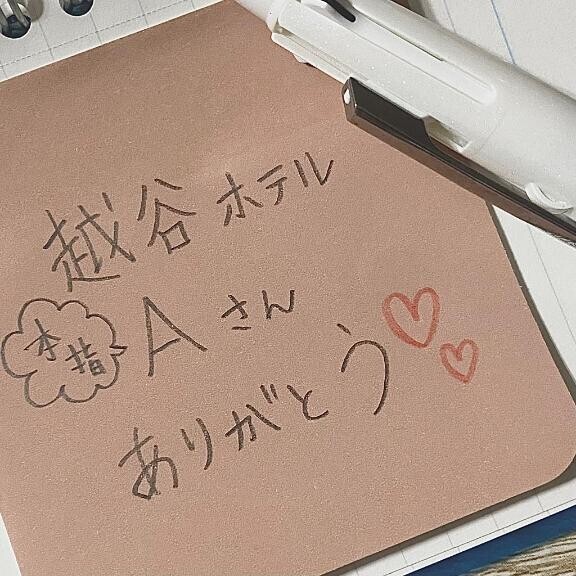 越谷ホテル
本指
Aさん
ありがとう